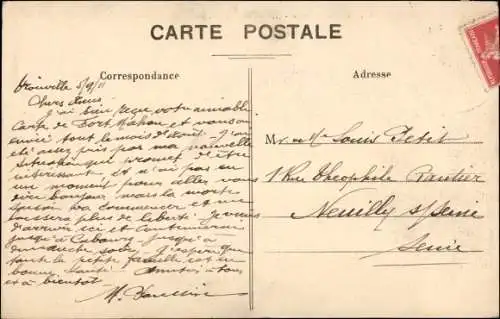 CARTE POSTALE
Correspondance
Adresse
Trouville 5/9/11
Chers Amis
J'ai bien reçu votre aimable
Carte de Fort Mahon et vous en
envié tout le mois d'Août. J'ai
été assez pris par ma nouvelle
situation qui promet d'être
intéressant, et n'ai pas eu
un moment pour aller vous
dire bonjour, mais la morte
saison va commencer et me
laissera plus de liberté. Je viens
d'arriver ici et continuerai
jusqu'à Cabourg jusqu'à
dimanche soir. J'espère que
toute la petite famille est en
bonne santé. Amitiés à tous
et à bientôt.
M.
Mr et Me Louis Petit
1 Rue Théophile Gautier
Neuilly s/Seine
Seine